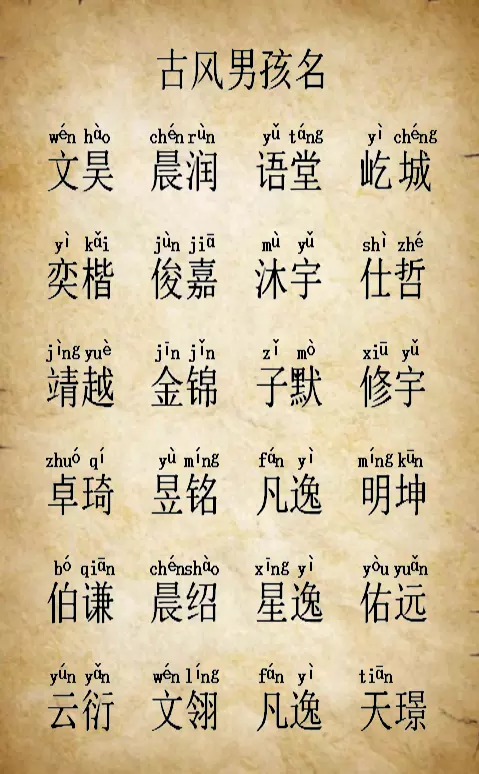 古风男孩名
wén hào chén rùn yǔ táng yì chéng
文昊 晨润 语堂 屹城
yì kǎi jùn jiā mù yǔ shì zhé
奕楷 俊嘉 沐宇 仕哲
jìng yuè jīn jǐn zǐ mò xiū yǔ
靖越 金锦 子默 修宇
zhuó qí yù míng fán yì míng kūn
卓琦 昱铭 凡逸 明坤
bó qiān chén shào xīng yì yòu yuǎn
伯谦 晨绍 星逸 佑远
yún yǎn wén líng fán yì tiān
云衍 文翎 凡逸 天璟